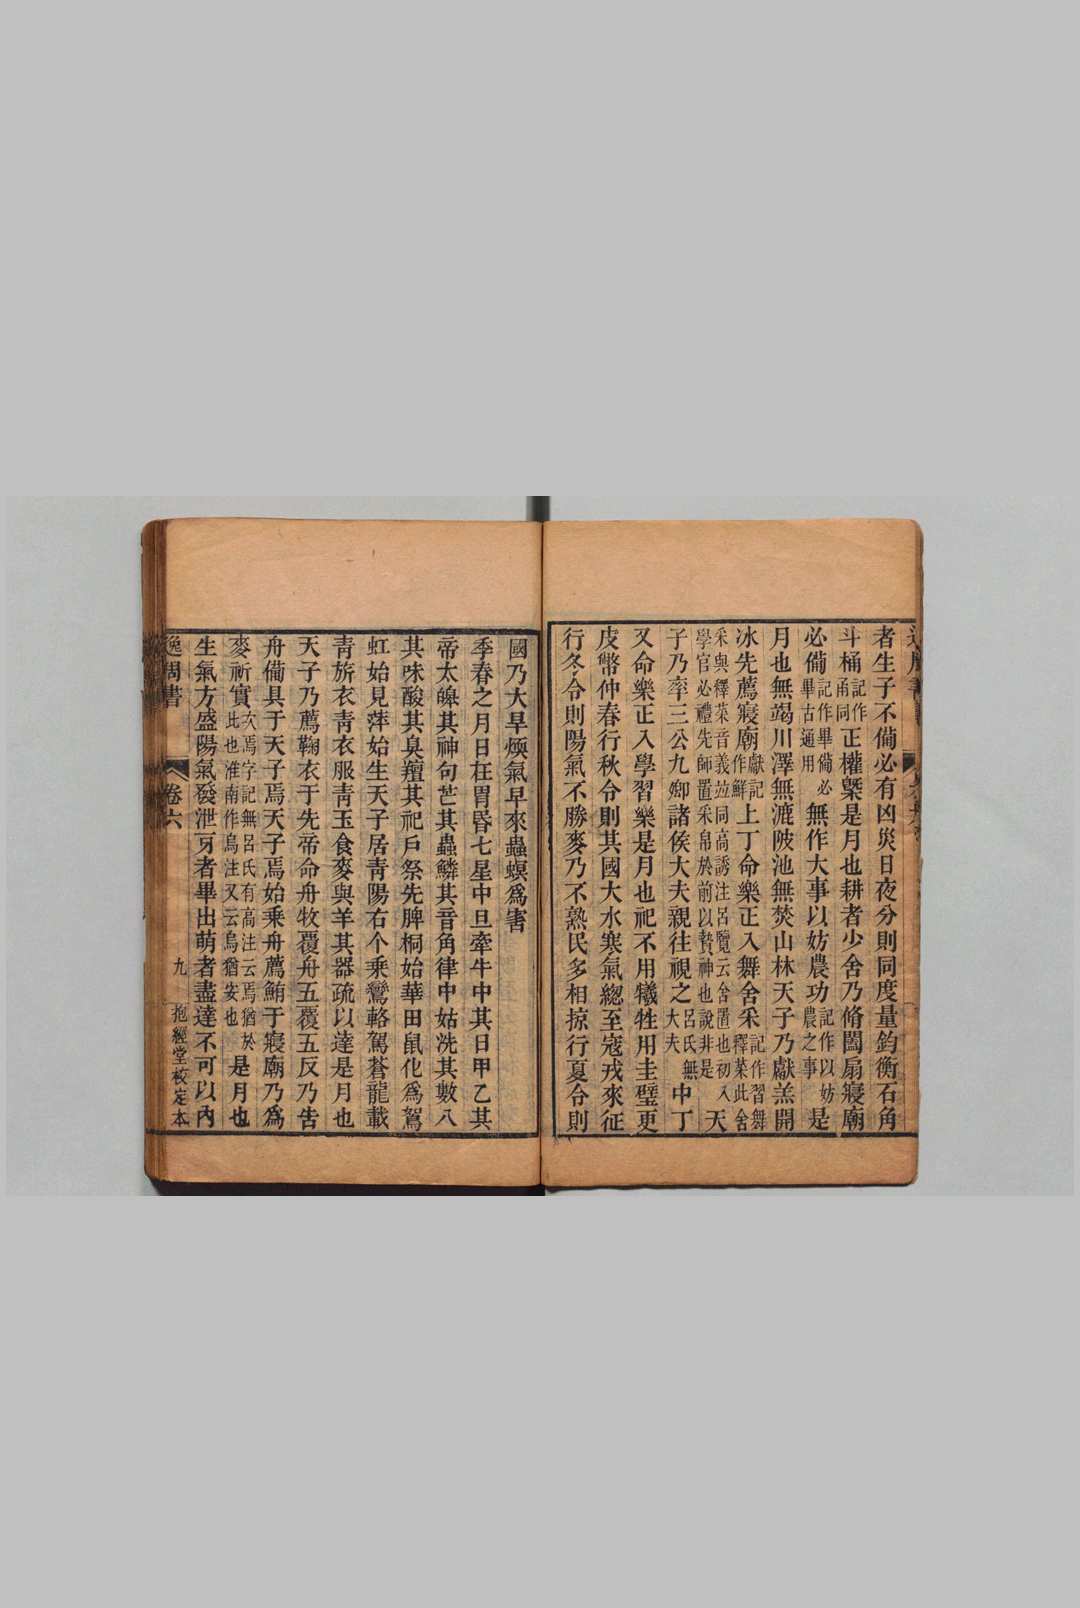 者生子不備必有凶災日夜分則同度量鈞衡石角
斗桶記作甬同正權槩是月也耕者少舍乃脩闔扇寢廟
必備記作畢備必畢古通用無作大事以妨農功記作以妨農之事是
月也無竭川澤無漉陂池無焚山林天子乃獻羔開
冰先薦寢廟獻記作鮮上丁命樂正入舞舍采記作習舞釋菜此舍
采與釋菜音義竝同高誘注呂覽云舍置也初入學官必禮先師置采帛於前以贄神也說非是天
子乃率三公九卿諸侯大夫親往視之呂氏無大夫中丁
又命樂正入學習樂是月也祀不用犧牲用圭璧更
皮幣仲春行秋令則其國大水寒氣總至寇戎來征
行冬令則陽氣不勝麥乃不熟民多相掠行夏令則
國乃大旱煗氣早來蟲螟爲害
季春之月日在胃昏七星中旦牽牛中其日甲乙其
帝太皞其神句芒其蟲鱗其音角律中姑洗其數八
其味酸其臭羶其祀戶祭先脾桐始華田鼠化爲鴽
虹始見萍始生天子居青陽右个乘鸞輅駕蒼龍載
青旂衣青衣服青玉食麥與羊其器疏以達是月也
天子乃薦鞠衣于先帝命舟牧覆舟五覆五反乃告
舟備具于天子焉天子焉始乘舟薦鮪于寢廟乃爲
麥祈實次焉字記無呂氏有高注云焉猶於此也淮南作烏注又云烏猶安也是月也
生氣方盛陽氣發泄牙者畢出萌者盡達不可以內
逸周書 卷六 九 抱經堂校定本